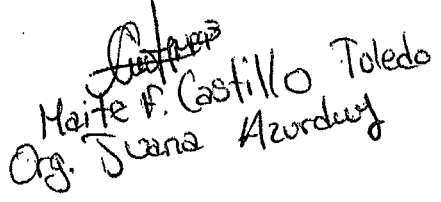 Maite F. Castillo Toledo
Org. Juana Azurduy